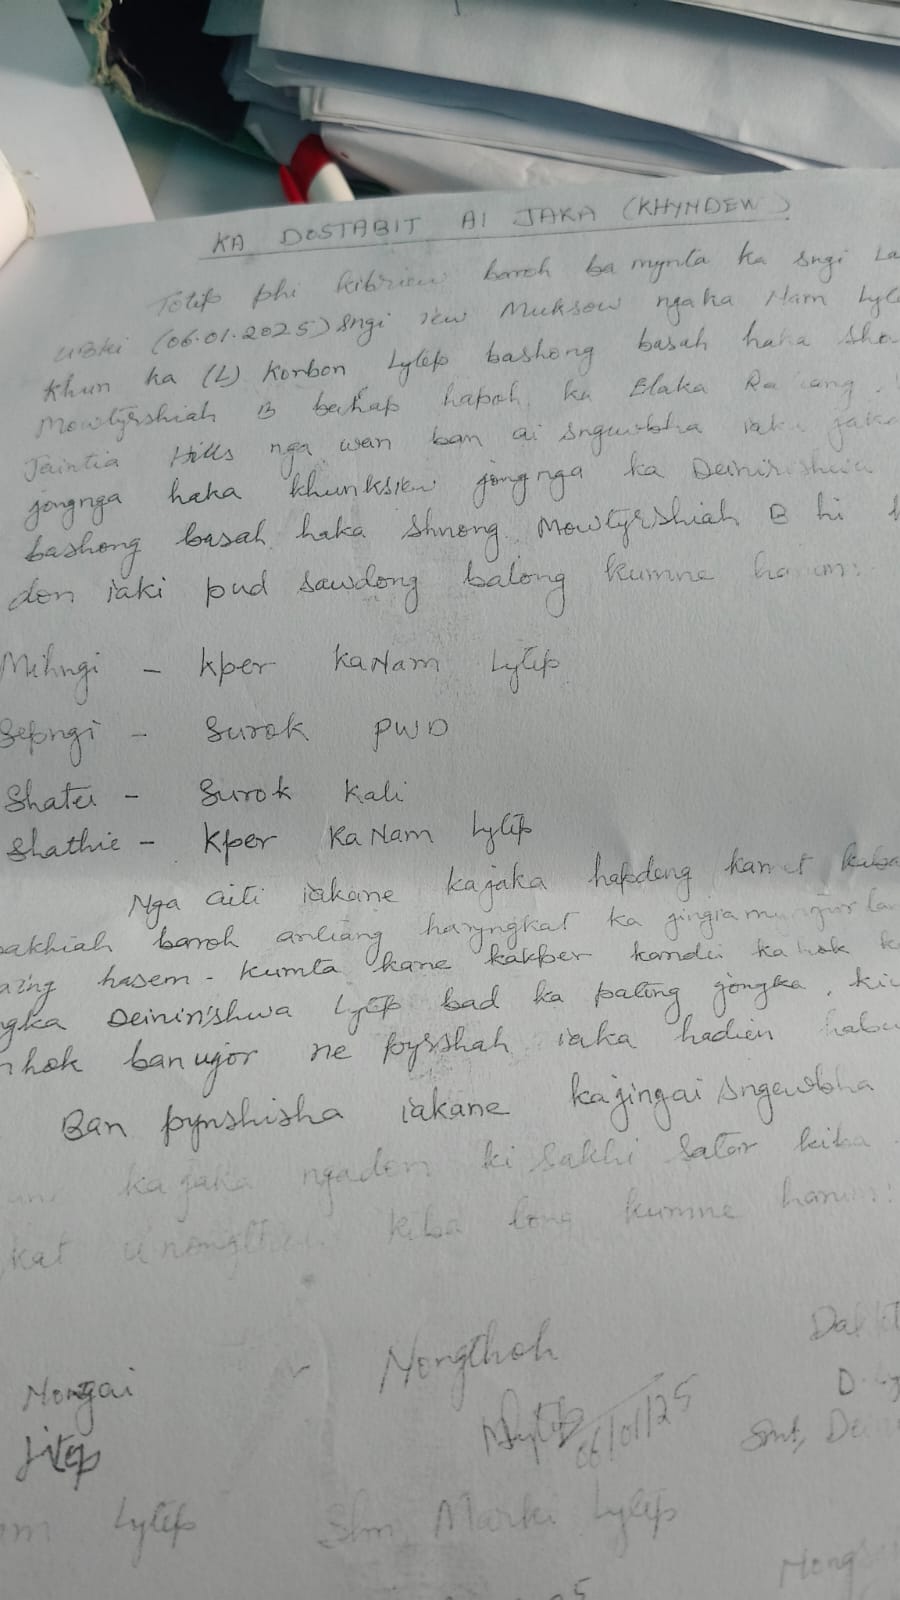 KA DOSTABIT AI JAKA (KHYNDEW)
Totip phi kibriew baroh ba mynta ka sngi La
(06.01.2025) Sngi iew Muksow ngaka Nam Lylep
khun ka (L) Korbon Lylep bashong basah haka Sho
Mowtyrshiah B bahap hapoh ka Elaka
Jaintia Hills nga wan ban ai sngewbha iaka jaka
jongnga haka khunksiew jongnga ka
bashong basah haka Shnong Mowtyrshiah B hi
don iaki pud sawdong balong kumne harum:-
Mihngi - Kper KaNam Lylep
Sepngi - Surok PWD
Shatei - Surok Kali
Shathie - Kper KaNam Lylep
Nga aiti iakane kajaka hapdeng kamet
bakhiah baroh arliang haryngkat ka
hasem. Kumta kane kakper kandei ka hok
Deinirishwa Lylep bad ka pateng jongka.
hok banujor ne pyrshah iaka hadien
Ban pynshisha iakane kajingai Sngewbha
kajaka ngadon ki sakhi sator kiba
kat kiba long kumne harum:
Nongai - Nongthoh
Lytep 06/01/25
Smt,
Lylep Shri Marki Lylep